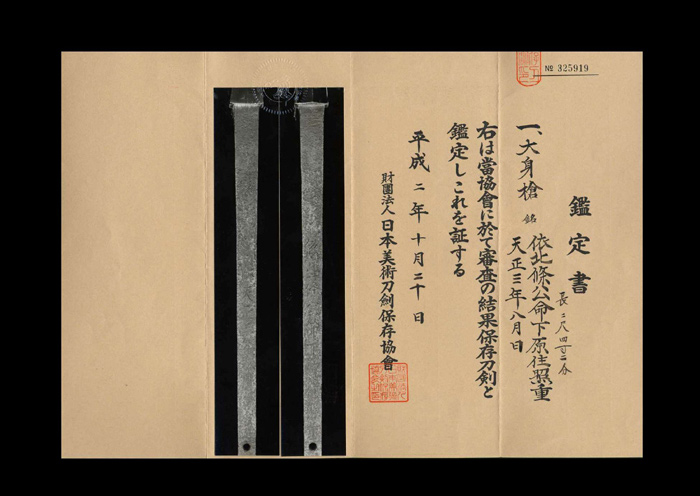 № 325919
鑑定書
長二尺四寸二分
一、大身槍 銘 依北條公命下原住照重
天正三年八月日
右は當協會に於て審査の結果保存刀剣と
鑑定しこれを証する
平成二年十月二十日
財團法人 日本美術刀劍保存協會